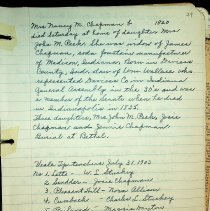 29
Mrs Nancy M. Chapman b 1820
died Saturday at home of daughter Mrs
John M. Peek. She was widow of James
Chapman, soda fountain manufacturer
of Madison, Indiana. Born in Daviess
County, Dau of Wm Wallace who
represented Daviess Co in Indiana
General Assembly in the 30's and was
a member of the Senate when he died
in Indianapolis in 1835.
Three daughters, Mrs John M. Peek, Josie
Chapman and Jennie Chapman.
Burial at Bethel.
Veale Tp. teachers July 31, 1903
No. 1. Letts - W. L. Stuckey
2. Sandhill - Josie Chapman
3. Pleasant Hill - Noras Allison
4. - Charles L. Stuckey